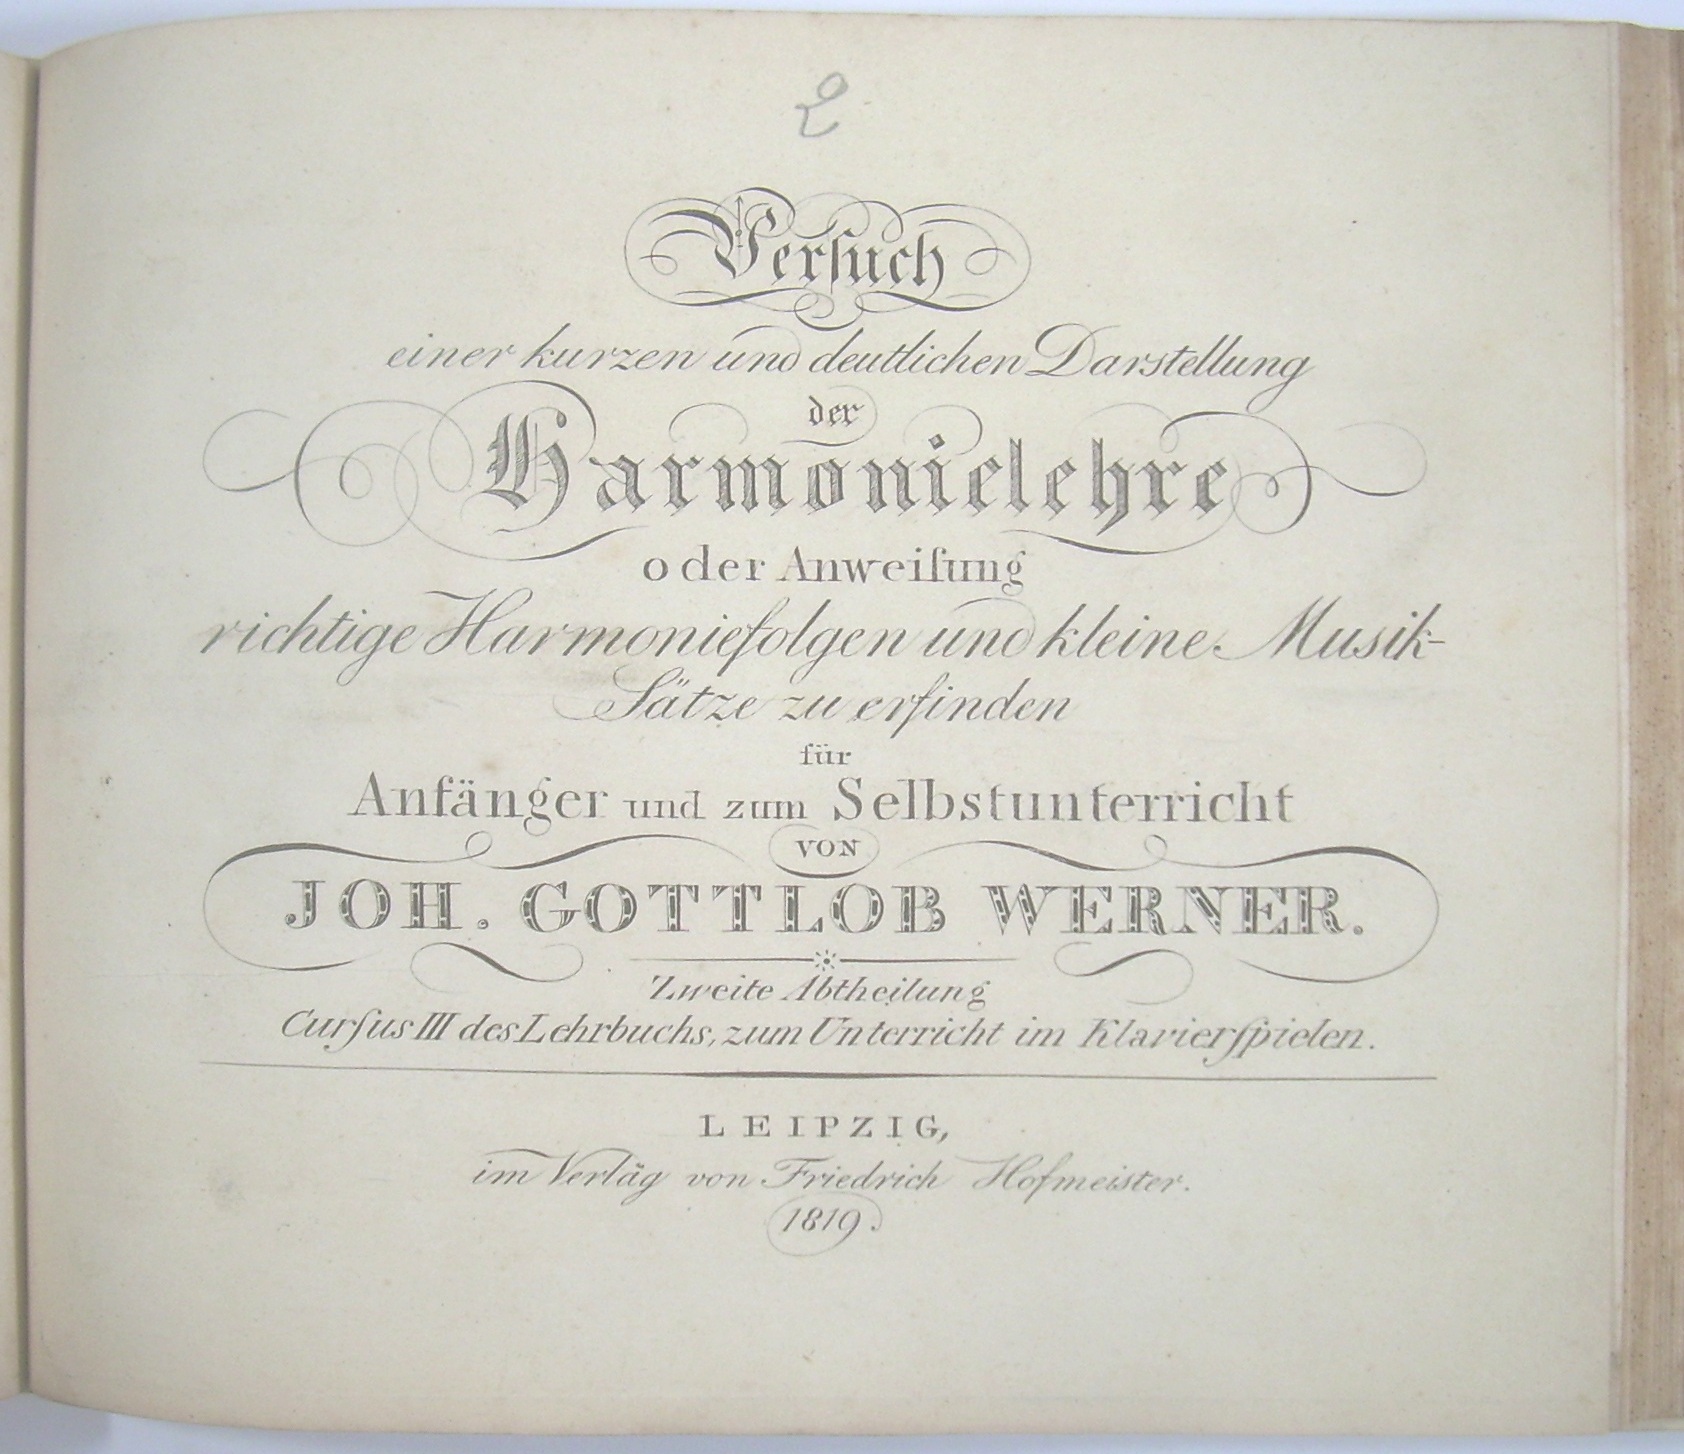 2
Verſuch
einer kurzen und deutlichen Darstellung
der
Harmonielehre
oder Anweiſung
richtige Harmoniefolgen und kleine Musik-
Sätze zu erfinden
für
Anfänger und zum Selbstunterricht
VON
JOH. GOTTLOB WERNER.
Zweite Abtheilung
Curſus III des Lehrbuchs, zum Unterricht im Klavierſpielen.
LEIPZIG,
im Verlag von Friedrich Hofmeister.
1819.